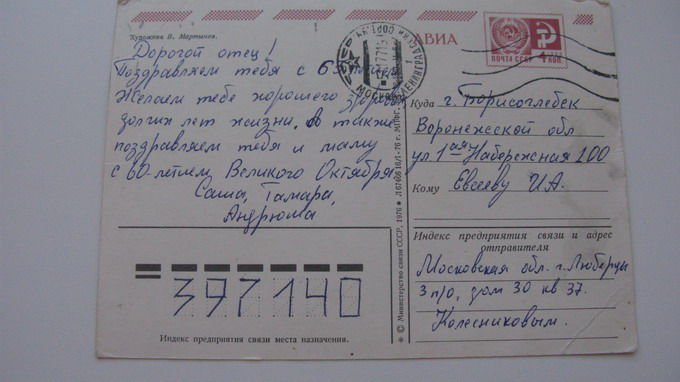 Художник В. Мартынов.
АВИА
ПОЧТА СССР
4 КОП.
Дорогой отец!
Поздравляем тебя с
Желаем тебе хорошего
долгих лет жизни. А также
поздравляем тебя и маму
с 60-летием Великого Октября
Саша, Тамара,
Андрюша
Куда г. Борисоглебск
Воронежской обл
ул. 1ая Набережная 200
Кому Евсееву И.А.
Индекс предприятия связи и адрес
отправителя
Московская обл. г. Люберцы
3 п/о, дом 30 кв 37.
Колесниковым.
© Министерство связи СССР, 1976
397140
Индекс предприятия связи места назначения.